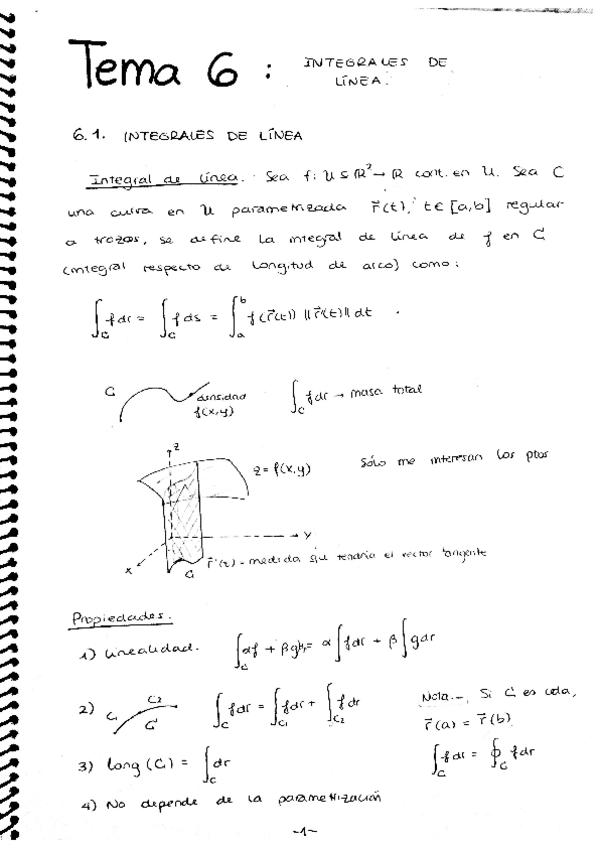 Tema 6 : INTEGRALES DE
LÍNEA.
6.1. INTEGRALES DE LÍNEA
Integral de línea. Sea f: U ⊆ ℝ² → ℝ cont. en U. Sea C
una curva en U parametrizada r⃗(t), t ∈ [a,b] regular
a trozos, se define la integral de línea de f en C
(integral respecto de longitud de arco) como:
∫_C f dr = ∫_C f ds = ∫_a^b f(r⃗(t)) ||r⃗'(t)|| dt .
C densidad f(x,y) ∫_C f dr → masa total
z
z = f(x,y) Sólo me interesan los ptos
y
x
r⃗'(t) - medida que tendría el vector tangente
C
Propiedades:
1) Linealidad. ∫_C αf + βg dr = α ∫ f dr + β ∫ g dr
2) C₁ C₂ C ∫_C f dr = ∫_C₁ f dr + ∫_C₂ f dr
Nota.-. Si C es
r⃗(a) = r⃗(b)
3) Long (C) = ∫_C dr
∫_C f dr = ∮_C f dr
4) No depende de la parametrización
-1-